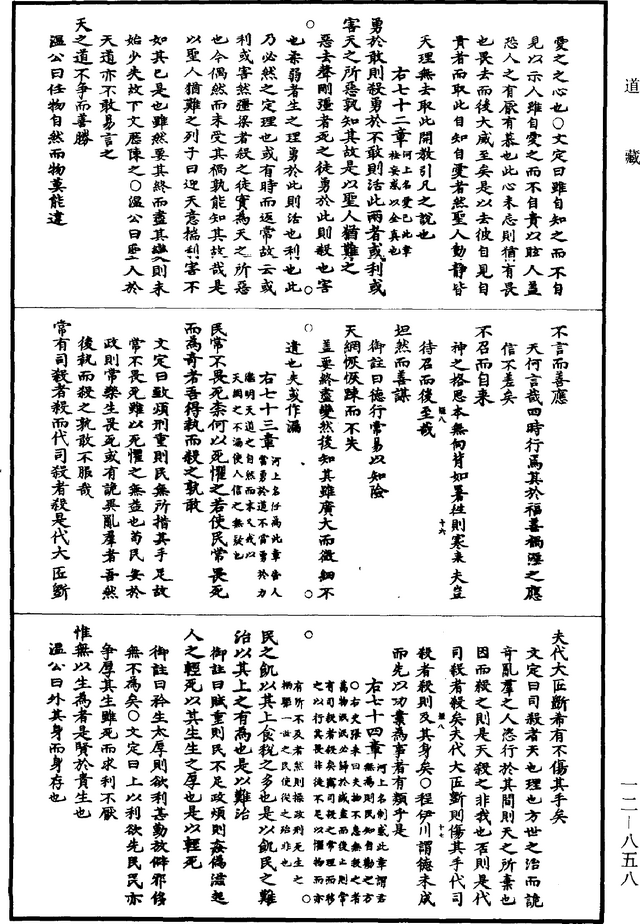 道藏
愛之之心也○文定曰雖自知之而不自
見以示人雖自愛之而不自貴以眩人蓋
恐人之有厭有慕也此心未忘則猶有畏
也畏去而後大威至矣是以去彼自見自
貴者而取此自知自愛者然聖人動靜皆
天理無去取此開教引凡之說也
右七十二章
河上名愛己此章
勇於敢則殺勇於不敢則活此兩者或利或
害天之所惡孰知其故是以聖人猶難之
惡去聲剛彊者死之徒勇於此則殺也害
也柔弱者生之理勇於此則活也利也此
乃必然之定理也或有時而返常故云或
利或害然彊梁者殺之徒實為天之所惡
也今偶然而未受其禍孰能知其故哉是
以聖人猶難之列子曰迎天意揣利害不
如其已是也雖然要其終而盡其變則未
始少失故下文歷陳之○溫公曰聖人於
天道亦不敢易言之
天之道不爭而善勝
溫公曰任物自然而物莫能違
不言而善應
天何言哉四時行焉其於福善禍淫之應
信不差矣
不召而自來
神之格思本無向背如暑往則寒來夫豈
待召而後至哉
坦然而善謀
御註曰德行常易以知險
天網恢恢踈而不失
蓋要終盡變然後知其雖廣大而微細不
遺也失或作漏
右七十三章
河上名任為此章言人
當勇於道不當勇於力
民常不畏死柰何以死懼之若使民常畏死
而為奇者吾得執而殺之孰敢
文定曰政煩刑重則民無所措其手足故
常不畏死雖以死懼之無益也苟民安於
政則常樂生畏死或有詭異亂羣者吾然
後執而殺之孰敢不服哉
常有司殺者殺而代司殺者殺是代大匠斲
夫代大匠斲希有不傷其手矣
文定曰司殺者天也理也方世之治而詭
奇亂羣之人恣行於其間則天之所棄也
因而殺之則是天殺之非我也否則是代
司殺者殺矣夫代大匠斲則傷其手代司
殺者殺則及其身矣○程伊川謂德未成
而先以功業為事者有類乎是
右七十四章
河上名制惑此章謂君
民之飢以其上食稅之多也是以飢民之難
治以其上之有為也是以難治
御註曰賦重則民不足政煩則姦偽滋起
人之輕死以其生生之厚也是以輕死
御註曰矜生太厚則欲利甚勤放僻邪侈
無不為矣○文定曰上以利欲先民民亦
爭厚其生雖死而求利不厭
惟無以生為者是賢於貴生也
溫公曰外其身而身存也
一二－八五八